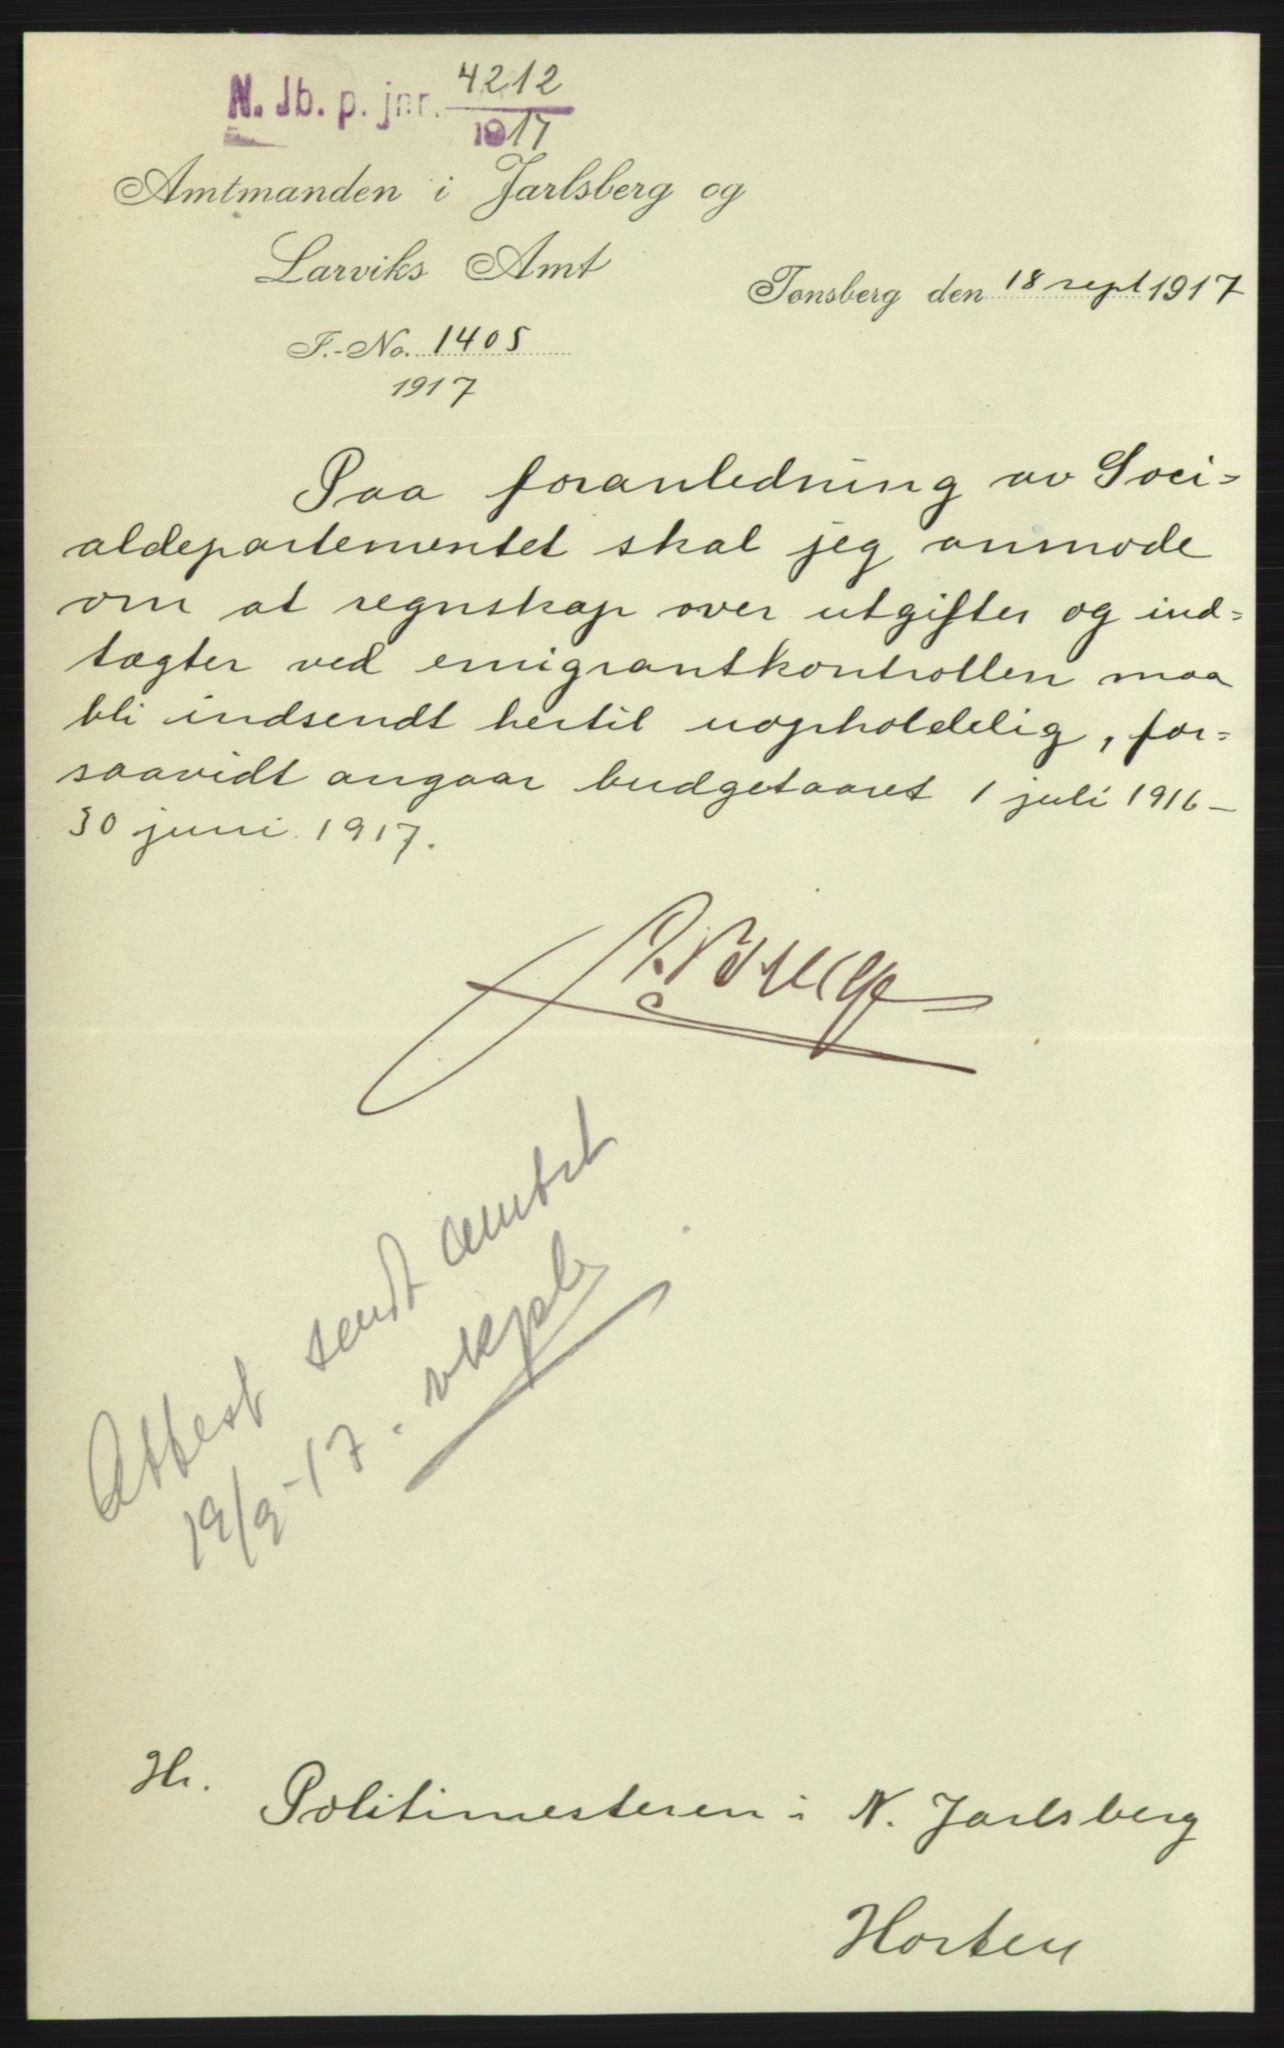 N. Jb. p. jnr. 4212
1917
Amtmanden i Jarlsberg og
Larviks Amt
Tønsberg den 18 sept 1917
J.-No. 1405
1917
Paa foranledning av Soci=
aldepartementet skal jeg anmode
om at regnskap over utgifter og ind=
tægter ved emigrantkontrollen maa
bli indsendt hertil uopholdelig, for=
saavidt angaar budgetaaret 1 juli 1916 –
30 juni 1917.
Attest sendt amtet
19/9-17.
Hr.
Politimesteren i N. Jarlsberg
Horten